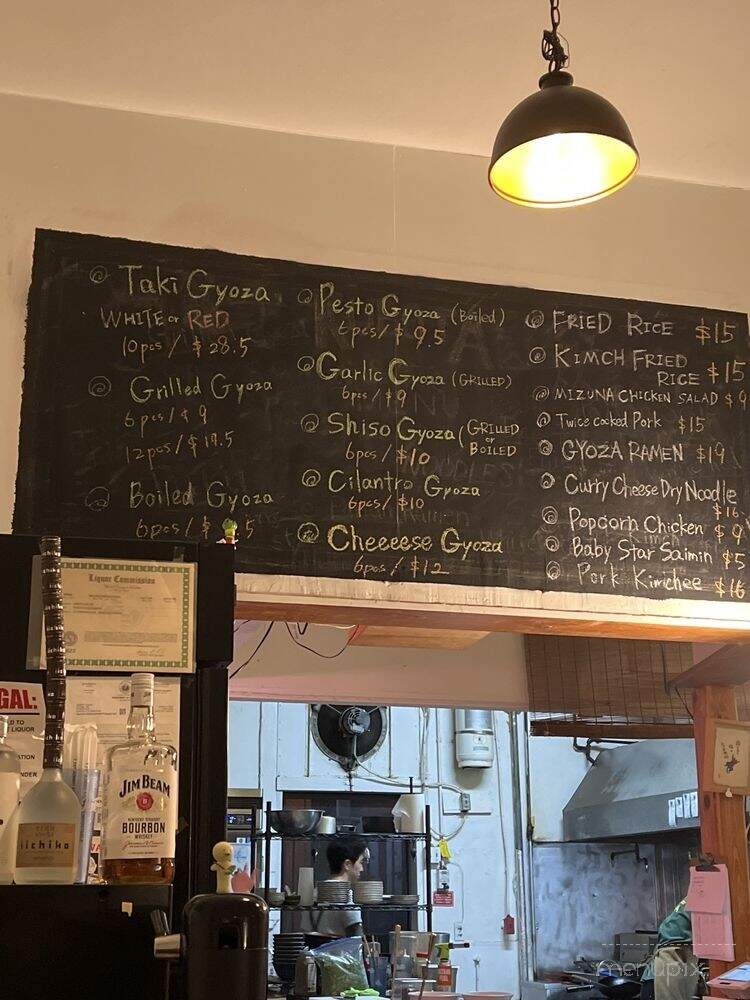 Taki Gyoza
WHITE or RED
10pcs / $28.5
Grilled Gyoza
6pcs / $9
12pcs / $17.5
Boiled Gyoza
6pcs / $ 5
Pesto Gyoza (Boiled)
6pcs / $9.5
Garlic Gyoza (GRILLED)
6pcs / $9
Shiso Gyoza (GRILLED or BOILED
6pcs / $10
Cilantro Gyoza
6pcs / $10
Cheeeese Gyoza
6pcs / $12
FRIED RICE $15
KIMCH FRIED
RICE $15
MIZUNA CHICKEN SALAD $9
Twice cooked Pork $15
GYOZA RAMEN $19
Curry Cheese Dry Noodle
$16
Popcorn Chicken $9
Baby Star Saimin $5
Pork Kimchee $16
Liquor Commission
GAL:
D TO
LIQUOR
ATION
NDER
JIM BEAM
KENTUCKY STRAIGHT
BOURBON
WHISKEY
iichiko
menupix